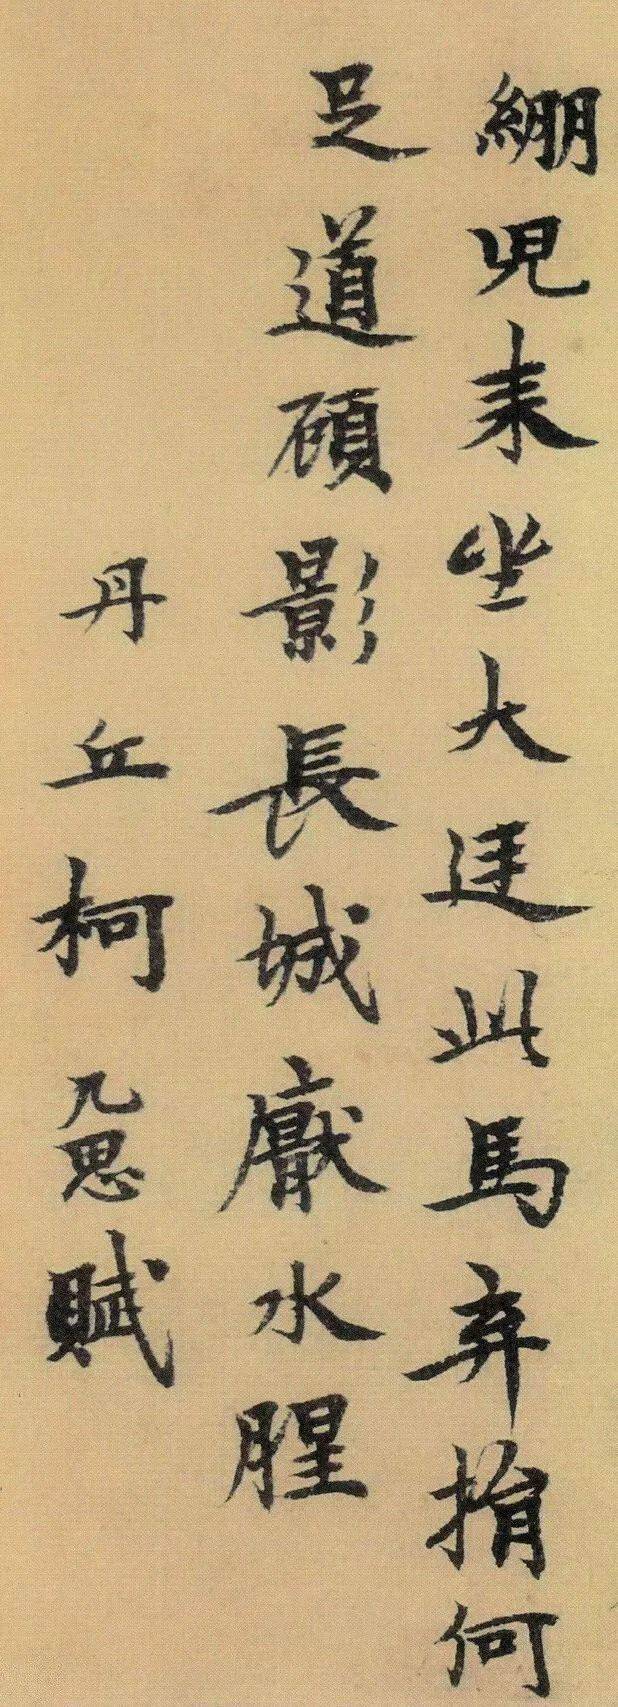 綳兒来坐大廷此馬弃捐何
足道顧影長城厭水腥
丹丘柯九思賦